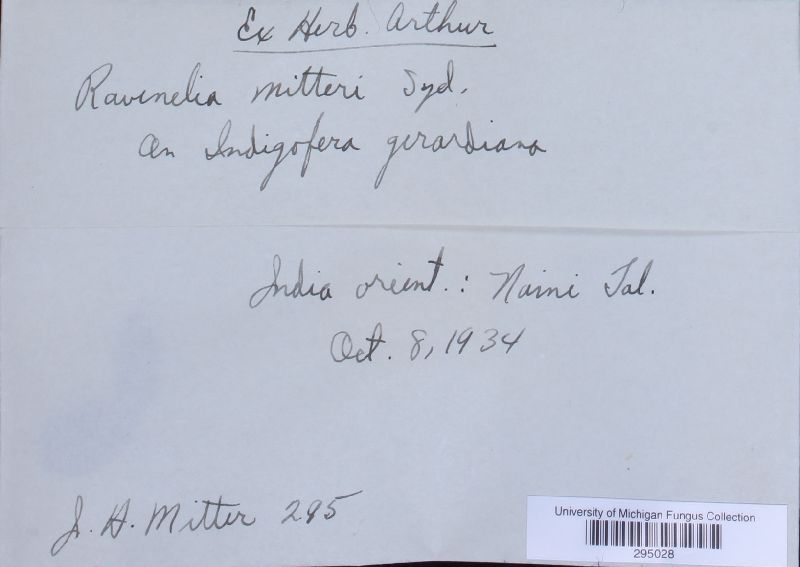 Ex Herb. Arthur
Ravenelia mitteri Syd.
on Indigofera gerardiana
India orient.: Naini Tal.
Oct. 8, 1934
J. H. Mitter 295
University of Michigan Fungus Collection
295028